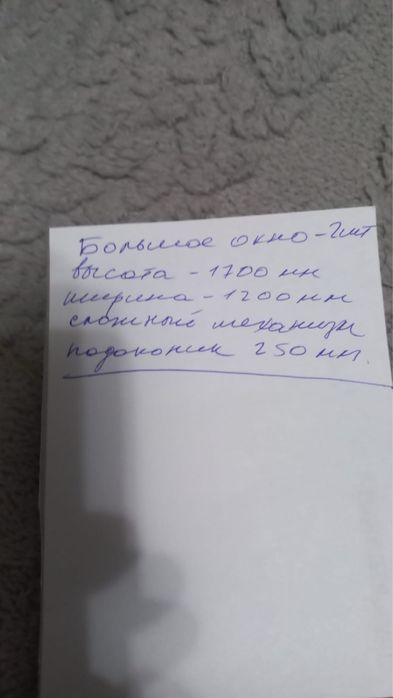 Большое окно - 2шт
высота - 1700 мм
ширина - 1200мм
сложный механизм
подоконик 250 мм.